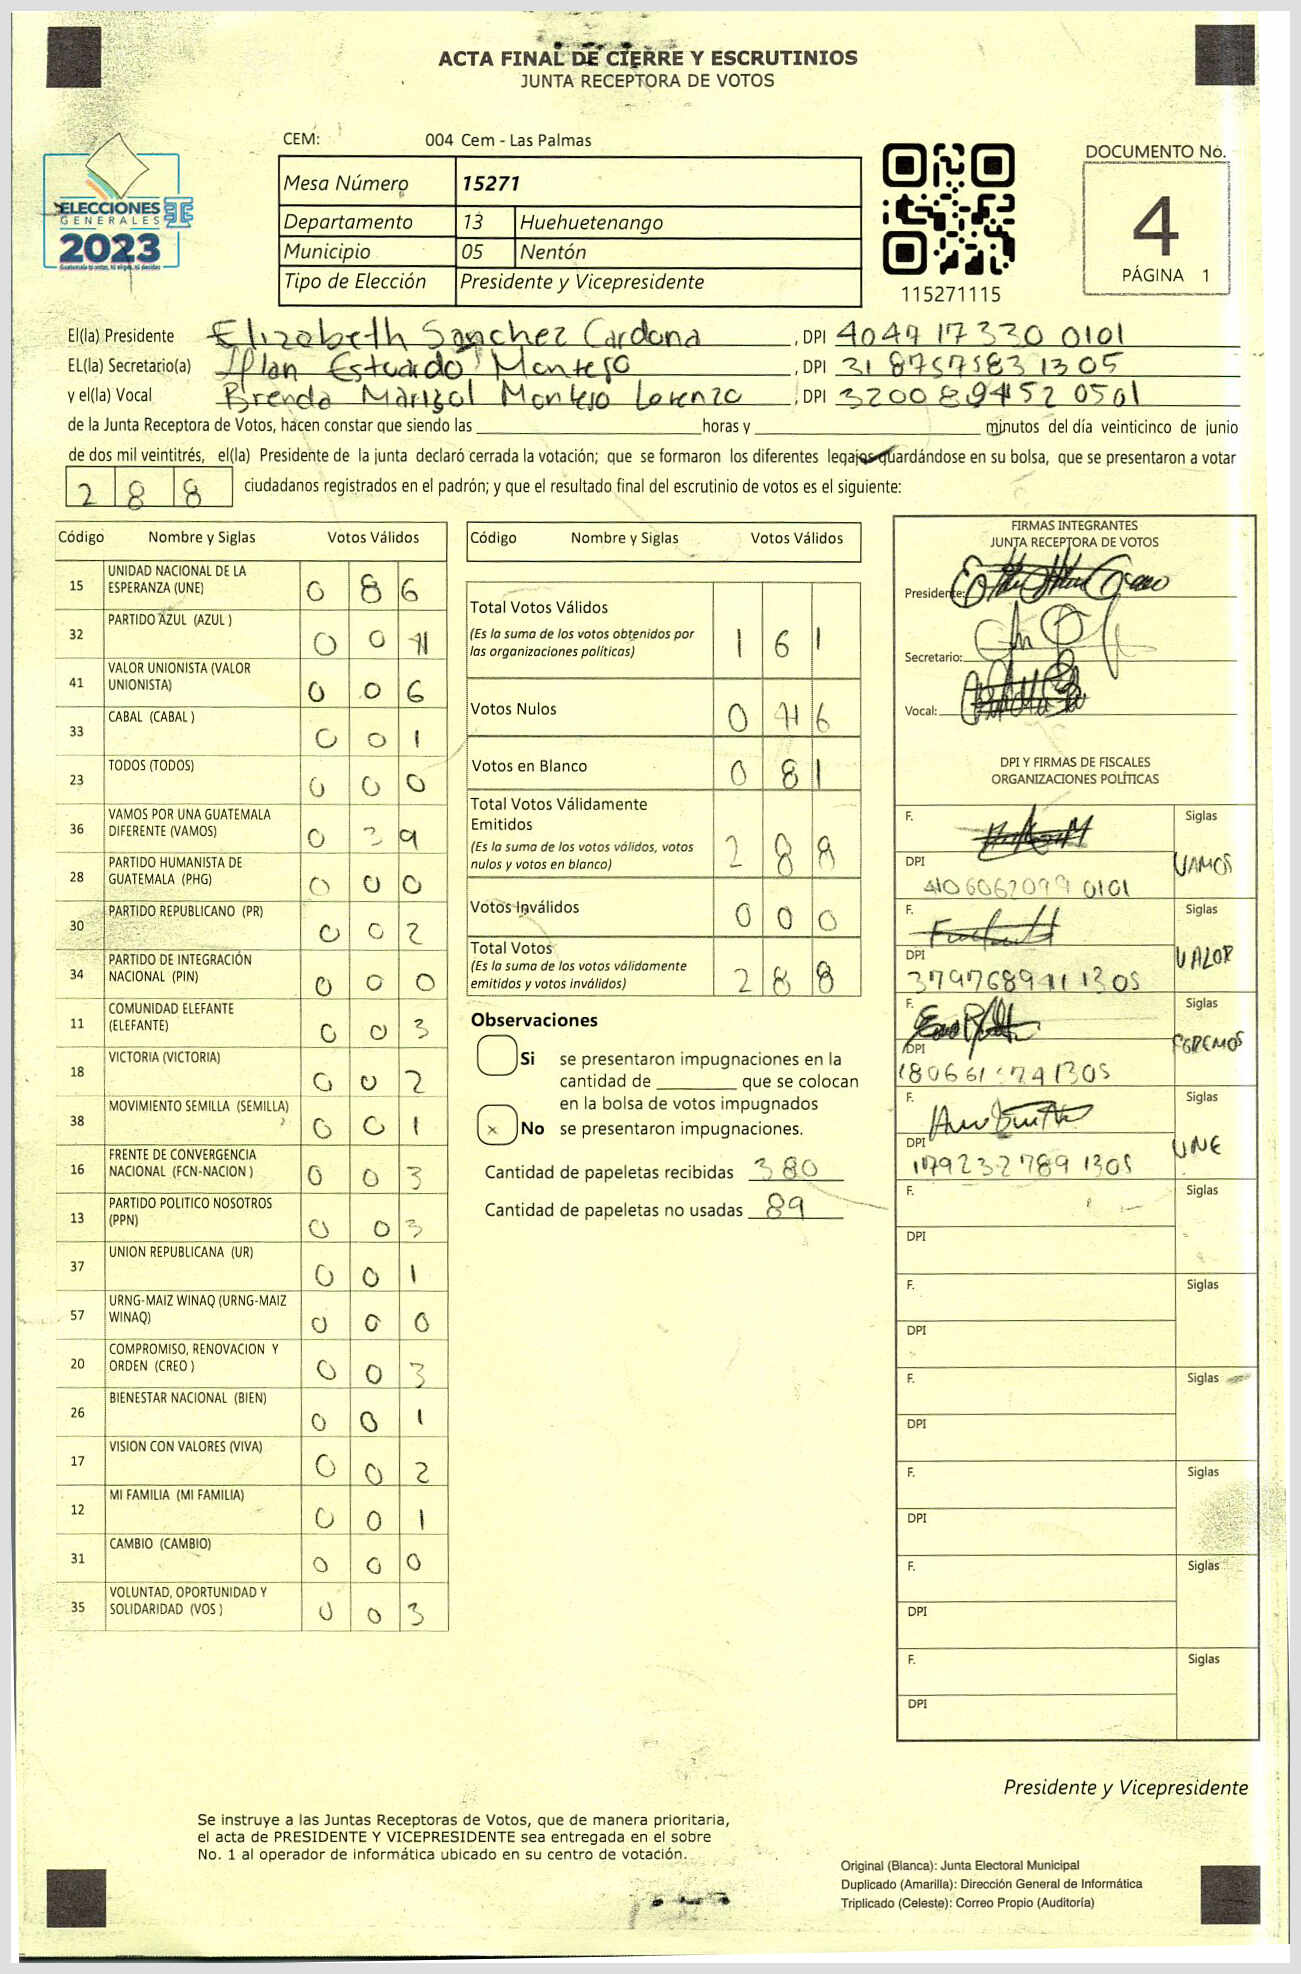 ACTA FINAL DE CIERRE Y ESCRUTINIOS
JUNTA RECEPTORA DE VOTOS
CEM: 004 Cem - Las Palmas
ELECCIONES
GENERALES
2023
Mesa Número 15271
Departamento 13 Huehuetenango
Municipio 05 Nentón
Tipo de Elección Presidente y Vicepresidente
115271115
DOCUMENTO No.
4
PÁGINA 1
El(la) Presidente Elizabeth Sanchez Cardona, DPI 4049 17330 0101
EL(la) Secretario(a) Estuardo Montejo, DPI 31 8757583 1305
y el(la) Vocal Brenda Marisol Montejo Lorenzo, DPI
de la Junta Receptora de Votos, hacen constar que siendo las ____ horas y ____ minutos del día veinticinco de junio
de dos mil veintitrés, el(la) Presidente de la junta declaró cerrada la votación; que se formaron los diferentes legajos guardándose en su bolsa, que se presentaron a votar
288 ciudadanos registrados en el padrón; y que el resultado final del escrutinio de votos es el siguiente:
Código Nombre y Siglas Votos Válidos
15 UNIDAD NACIONAL DE LA ESPERANZA (UNE) 0 8 6
32 PARTIDO AZUL (AZUL ) 0 0 4
41 VALOR UNIONISTA (VALOR UNIONISTA) 0 0 6
33 CABAL (CABAL ) 0 0 1
23 TODOS (TODOS) 0 0 0
36 VAMOS POR UNA GUATEMALA DIFERENTE (VAMOS) 0 3 9
28 PARTIDO HUMANISTA DE GUATEMALA (PHG) 0 0 0
30 PARTIDO REPUBLICANO (PR) 0 0 2
34 PARTIDO DE INTEGRACIÓN NACIONAL (PIN) 0 0 0
11 COMUNIDAD ELEFANTE (ELEFANTE) 0 0 3
18 VICTORIA (VICTORIA) 0 0 2
38 MOVIMIENTO SEMILLA (SEMILLA) 0 0 1
16 FRENTE DE CONVERGENCIA NACIONAL (FCN-NACION ) 0 0 3
13 PARTIDO POLITICO NOSOTROS (PPN) 0 0 3
37 UNION REPUBLICANA (UR) 0 0 1
57 URNG-MAIZ WINAQ (URNG-MAIZ WINAQ) 0 0 0
20 COMPROMISO, RENOVACION Y ORDEN (CREO ) 0 0 3
26 BIENESTAR NACIONAL (BIEN) 0 0 1
17 VISION CON VALORES (VIVA) 0 0 2
12 MI FAMILIA (MI FAMILIA) 0 0 1
31 CAMBIO (CAMBIO) 0 0 0
35 VOLUNTAD, OPORTUNIDAD Y SOLIDARIDAD (VOS ) 0 0 3
Código Nombre y Siglas Votos Válidos
Total Votos Válidos 1 6 1
(Es la suma de los votos obtenidos por
las organizaciones políticas)
Votos Nulos 0 4 6
Votos en Blanco 0 8 1
Total Votos Válidamente
Emitidos 2 8 8
(Es la suma de los votos válidos, votos
nulos y votos en blanco)
Votos Inválidos 0 0 0
Total Votos 2 8 8
(Es la suma de los votos válidamente
emitidos y votos inválidos)
Observaciones
Si se presentaron impugnaciones en la
cantidad de ____ que se colocan
en la bolsa de votos impugnados
x No se presentaron impugnaciones.
Cantidad de papeletas recibidas 380
Cantidad de papeletas no usadas 89
FIRMAS INTEGRANTES
JUNTA RECEPTORA DE VOTOS
Presidente:
Secretario:
Vocal:
DPI Y FIRMAS DE FISCALES
ORGANIZACIONES POLÍTICAS
F. Siglas
DPI 4106062099 0101 VAMOS
F. Siglas
DPI VALOR
F. Siglas
DPI
F. Siglas
DPI 179232789 1305 UNE
F. Siglas
DPI
F. Siglas
DPI
F. Siglas
DPI
F. Siglas
DPI
F. Siglas
DPI
F. Siglas
DPI
Presidente y Vicepresidente
Se instruye a las Juntas Receptoras de Votos, que de manera prioritaria,
el acta de PRESIDENTE Y VICEPRESIDENTE sea entregada en el sobre
No. 1 al operador de informática ubicado en su centro de votación.
Original (Blanca): Junta Electoral Municipal
Duplicado (Amarilla): Dirección General de Informática
Triplicado (Celeste): Correo Propio (Auditoría)